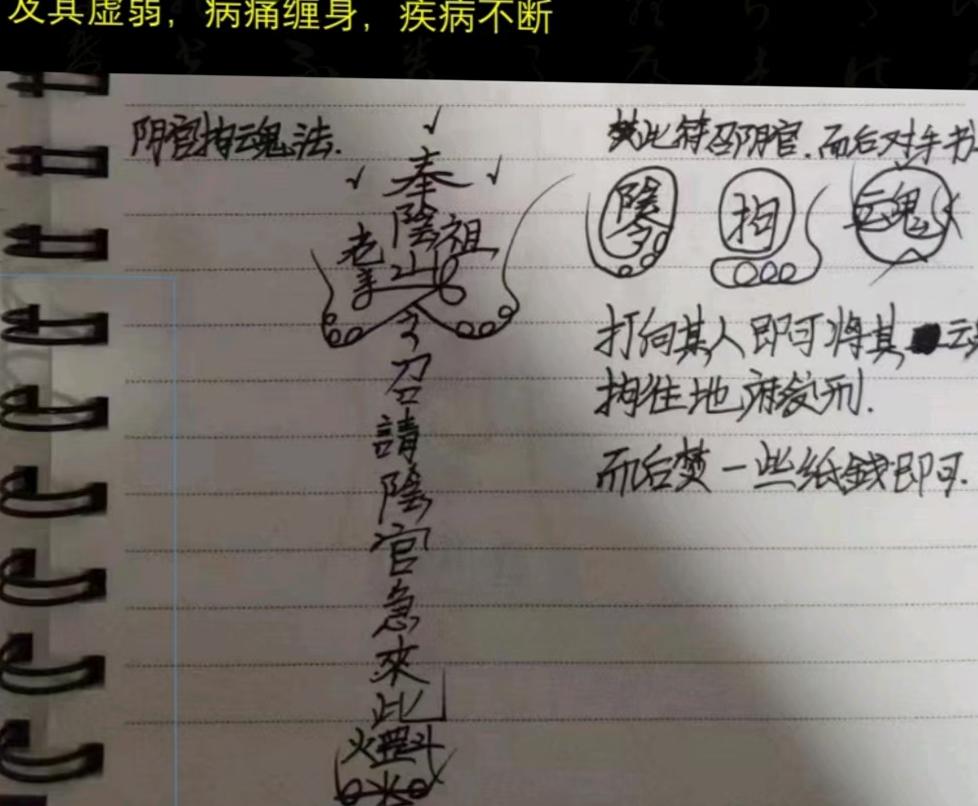 及其虚弱，病痛缠身，疾病不断
阴官拘魂法.
奉
陰
老 山 祖
令
召
請
陰
官
急
來
此
焚此符召阴官.而后对手书
陰令 拘 魂
打向某人即可将其
拘往地府受刑.
而后焚一些纸錢即可.